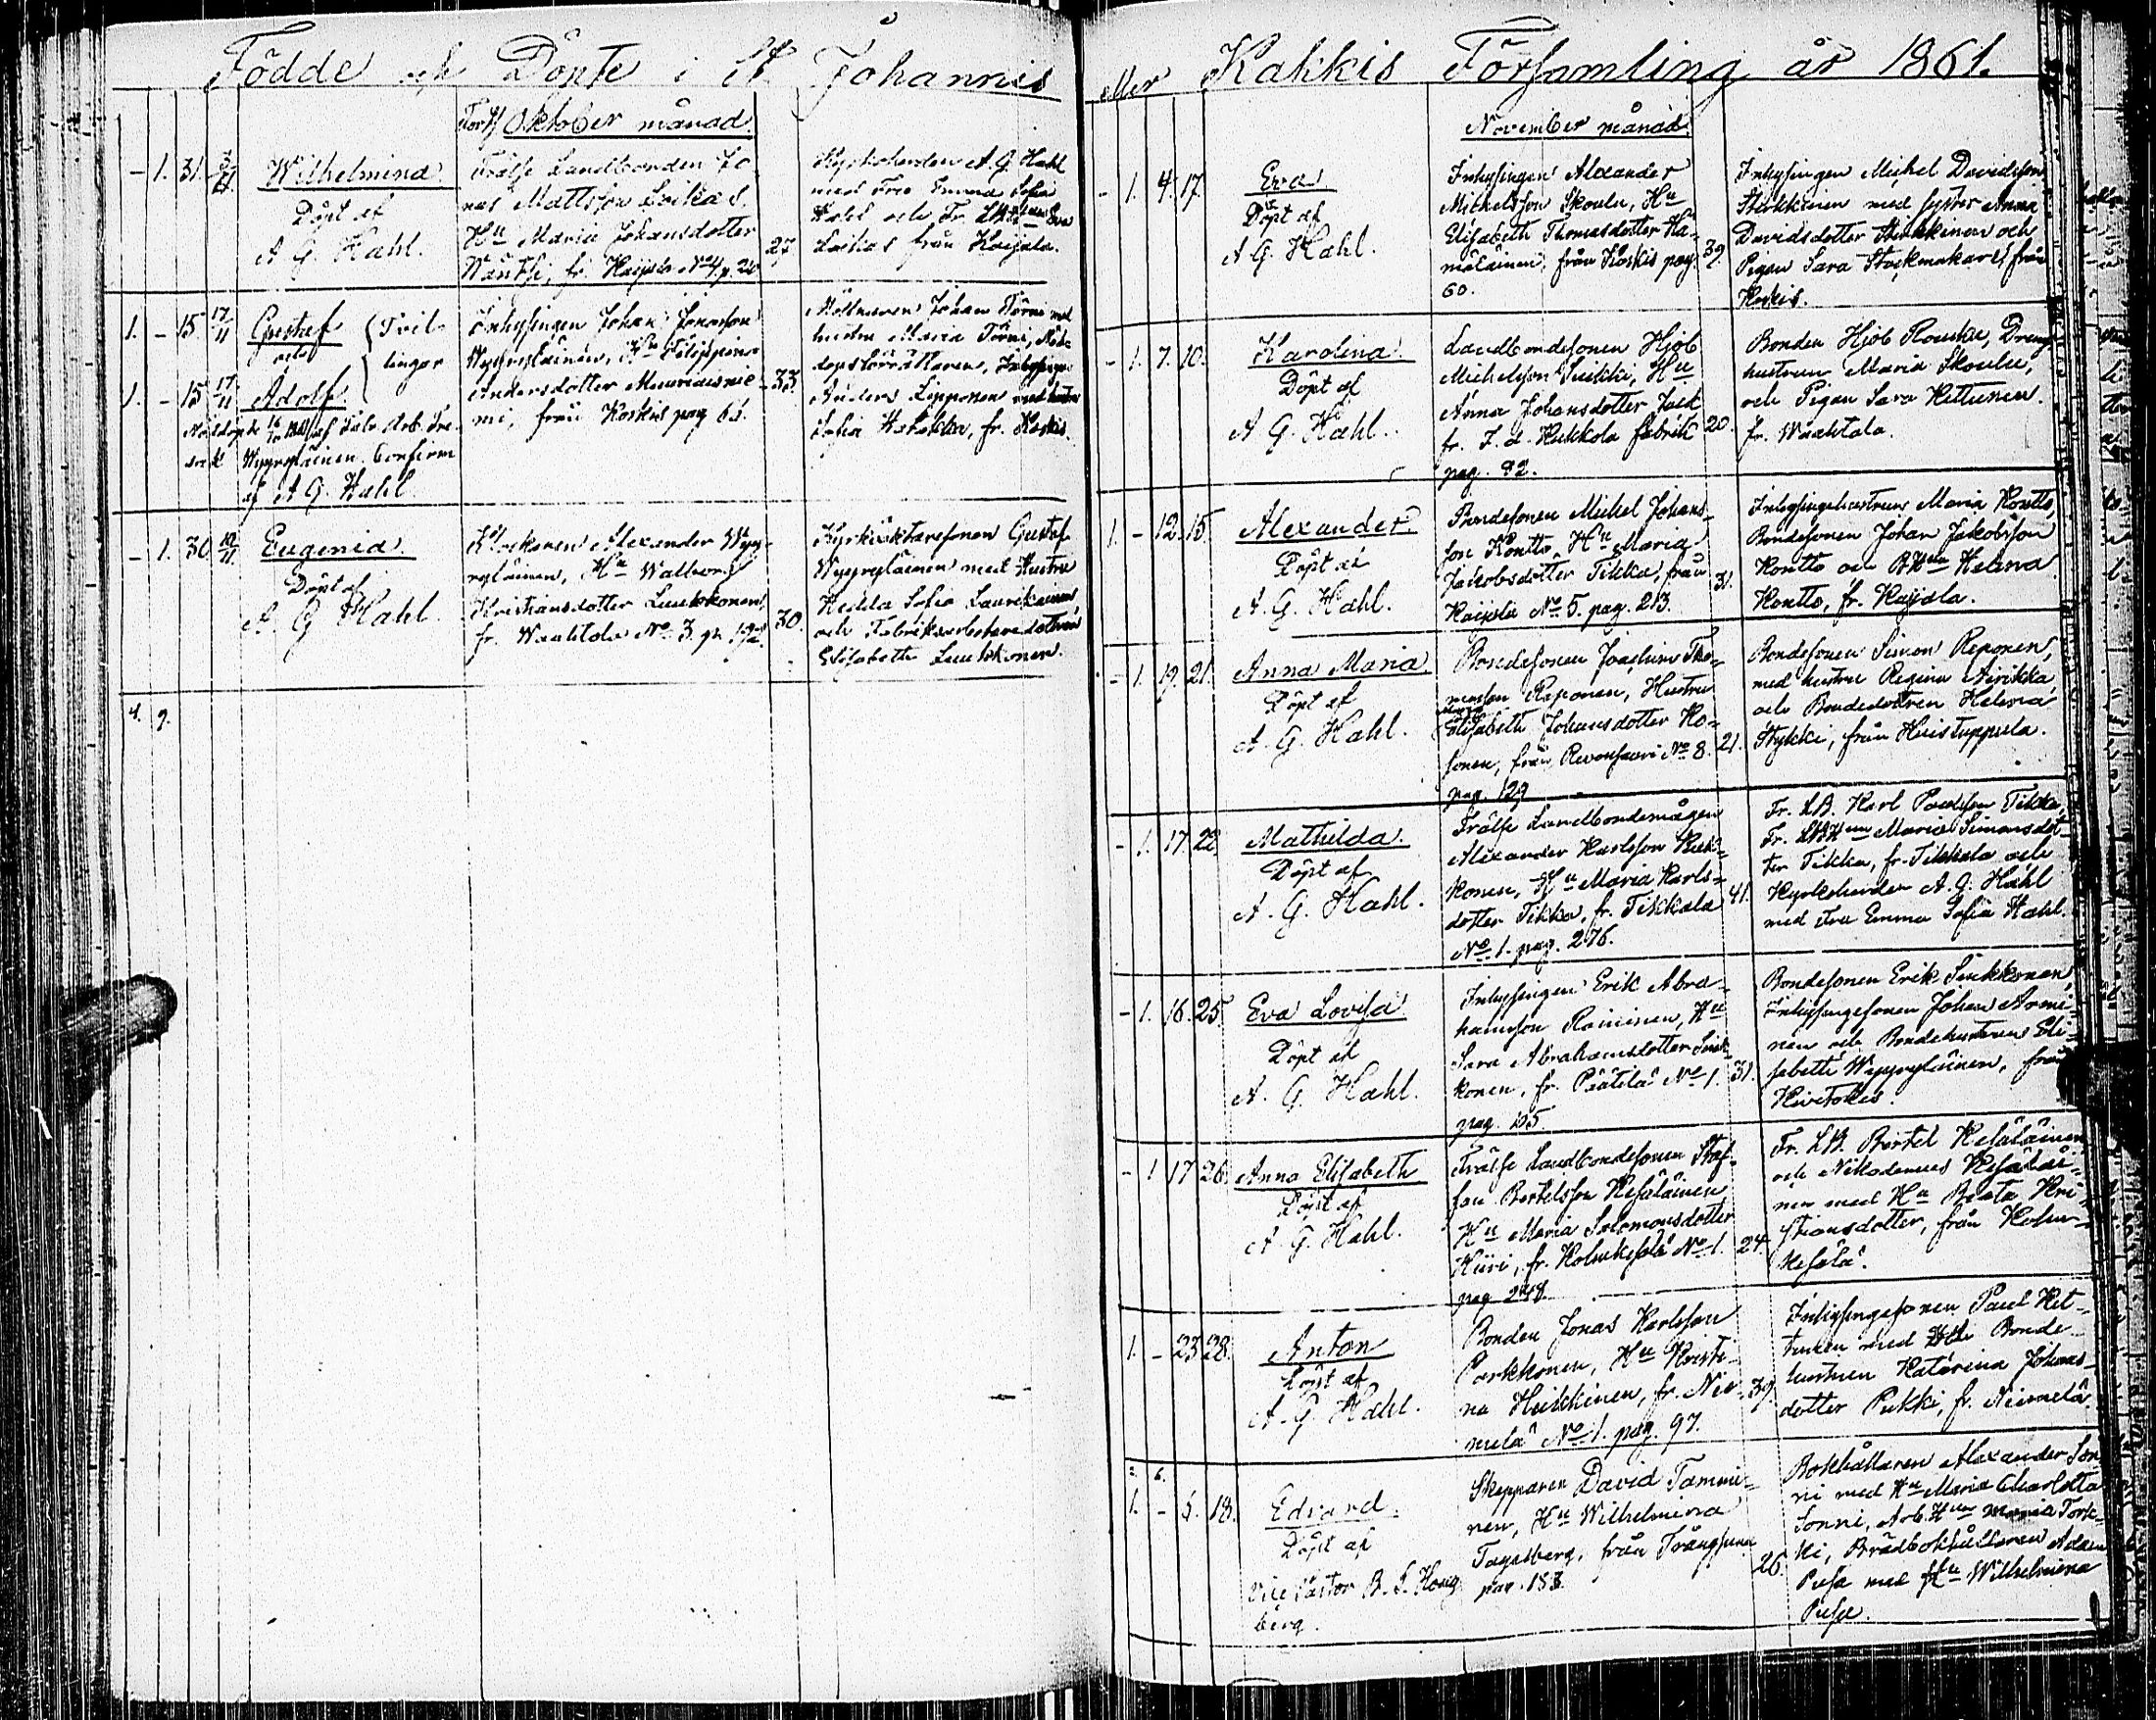 Födde och Döpte i St. Johannis
Forts. Oktober månad.
- 1. 31. 3/11. Wilhelmina.
Döpt af
A G Hahl.
Frälse Landbonden Jo
nas Mattsson Loikas.
Hu Maria Johansdotter
Wäntsi, fr. Kaijala No 4. p. 20
27
Kyrkoherden A. G. Hahl
med Fru Emma Sofia
Hahl och Fr. LBHun Eva
Loikas från Kaijala.
1. - 15. 17/11 Gustaf
och
Tvil-
lingar
1. - 15 17/11 Adolf
Nöddöpte af Fabr. Arb.
Wyyryläinen. Confirm
af A G. Hahl
Inhysingen Johan Jonasson
Wyyryläinen, Hu Filippina
Andersdotter Muuraisnie-
mi, från Koskis pag 65.
33.
Möllnaren Johan Törni med
hustru Maria Törni, Nöd-
dopsförrättaren, Inhysingen
Anders Lipponen med hustru
Sofia Hatakka, fr. Koskis.
- 1. 30. 10/11. Eugenia.
Döpt af
A. G Hahl.
Klockaren Alexander Wyy-
ryläinen, Hu Walborg
Kristiansdotter Luukkonen,
fr. Waahtola No 3. p. 192.
30.
Kyrkväktaresonen Gustaf
Wyyryläinen med Hustru
Hedda Sofia Laurikainen
och Fabriksarbetaredottren
Elisabeth Luukkonen.
4. 9.
eller Kakkis Församling år 1861.
November månad.
- 1. 4. 17. Eva
Döpt af
A. G. Hahl.
Inhysingen Alexander
Michelsson Skoulu, Hu
Elisabeth Thomasdotter Hä-
mäläinen, från Koskis pag.
60.
39.
Inhysingen Michel Davidsson
Sirkkinen med syster Anna
Davidsdotter Sirkkinen och
Pigan Sara Stockmakars, från
Koskis.
- 1. 7. 10. Karolina.
Döpt af
A G. Hahl.
Landbondesonen Hjob
Michelsson Suikki, Hu
Anna Johansdotter Jack
fr. Kukkola fabrik
pag. 92.
20.
Bonden Hjob Rouhu, Dreng-
hustrun Maria Skoulu,
och Pigan Sara Kettunen.
fr. Waahtola.
1. - 12. 15. Alexander.
Döpt af
A. G. Hahl.
Bondesonen Michel Johans-
son Kontto, Hu Maria
Jakobsdotter Tikka, från
Kaijala No 5. pag. 213.
31.
Inhysingehustrun Maria Kontto,
Bondesonen Johan Jakobsson
Kontto och BHun Helena
Kontto, fr. Kaijala.
- 1. 19. 21. Anna Maria.
Döpt af
A. G. Hahl.
Bondesonen Joachim Tho-
masson Reponen, Hustru
Elisabeth Johansdotter Ko-
sonen, från Revonsaari No 8.
pag. 129
21.
Bondesonen Simon Reponen,
med hustru Regina Airikka
och Bondedottren Helena
Stykki, från Huistuppula.
- 1. 17. 22. Mathilda.
Döpt af
A. G. Hahl.
Frälse Landbondemågen
Alexander Karlsson Kuk-
konen, Hu Maria Karls-
dotter Tikka, fr. Tikkala
No 1. pag. 276.
41.
Fr. LB. Karl Paulsson Tikka,
Fr. LBHun Maria Simonsdot-
ter Tikka, fr. Tikkala och
Kyrkoherden A. G. Hahl
med Fru Emma Sofia Hahl.
- 1. 16. 25. Eva Lovisa.
Döpt af
A. G. Hahl.
Inhysingen Erik Abra-
hamsson Roininen, Hu
Sara Abrahamsdotter Sirk-
konen, fr. Päätilä No 1.
pag. 105.
31.
Bondesonen Erik Sirkkonen,
Inhysingesonen Johan Armi-
nen och Bondehustrun Eli-
sabeth Wyyryläinen, från
Kirstokis.
- 1 17 26. Anna Elisabeth
Döpt af
A. G. Hahl.
Frälse Landbondesonen Staf-
fan Bertelsson Kesäläinen
Hu Maria Salomonsdotter
Kiiri, fr. Kolmikesälä No 1.
pag 248.
24.
Fr. LB. Bertel Kesäläinen
och Nikodemus Kesäläi-
nen med Hu Beata Kri-
stiansdotter, från Kolmi-
kesälä.
1. - 23 28. Anton
Döpt af
A. G. Hahl.
Bonden Jonas Karlsson
Parkkonen, Hu Kristi-
na Heikkinen, fr. Nie-
melä No 1. pag. 97.
39.
Inhysingesonen Paul Kit-
tunen med Bonde-
hustrun Katarina Johans-
dotter Pukki, fr. Niemelä.
2. 6.
1. - 5. 18. Edvard.
Döpt af
Vice Pastor B. F. Honig
berg.
Skepparen David Tammi-
nen, Hu Wilhelmina
Tagelberg, från Trångsund
pag. 183.
26.
Bokhållaren Alexander Son
ni med Hu Maria Charlotta
Sonni, Arb. Hun Maria Tork-
ki, Brädbokhållaren Adam
Pusa med Hu Wilhelmina
Pusa.